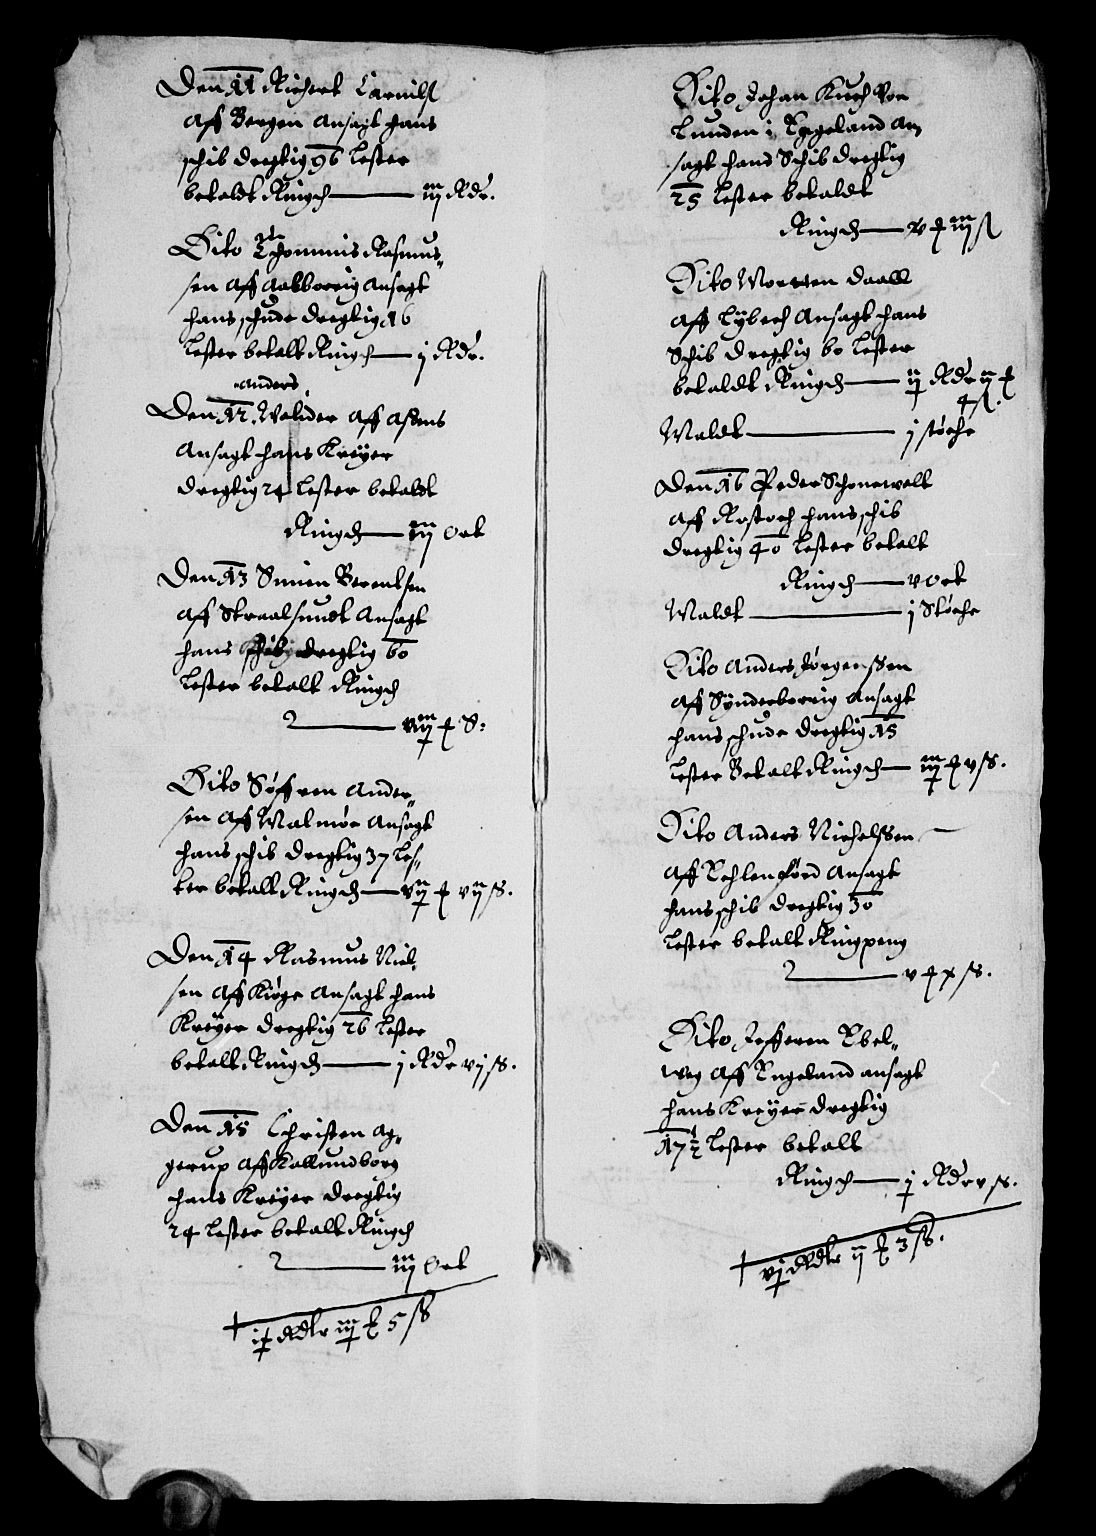 Den 11 Richert Carnils
aff Bergen Ansagt hans
schib dregtig 96 lester
bekaldt Ringch — iij Rdr.
Dito Thommis Rasmus„
sen aff Aalborrig Ansagt
hans schude dregtig 16
lester bekalt Ringch — j Rdr.
Anders
Den 12. Welider aff Assens
Ansagt hans Kreyer
dregtig 24 lester bekaldt
Ringch — iij Ort
Den 13 Simen Berentsen
aff Straalsundt Ansagt
hans schib dregtig 60
lester bekalt Ringch
S:
Dito Søffren Ander„
sen aff Malmøe Ansagt
hans schib dregtig 37 les„
ter bekalt Ringch — vij ß.
Den 14 Rasmus Niel„
sen aff Kiøge Ansagt hans
Kreyer dregtig 26 lester
bekalt Ringch — j Rdr vj ß.
Den 15 Christen Ag„
gerup aff Kallundborg
hans Kreyer dregtig
24 lester bekalt Ringch
iij Ort
Rdlr 5 ß
Dito Johan Kuch Von
Lunden i Engeland An
sagt hans Schib dregtig
25 lester bekaldt
Ringch —
Dito Morten Daall
aff Lybech Ansagt hans
Schib dregtig 60 lester
bekaldt Ringch — Rdr ij
4 ß.
Maldt — j støche
Den 16 Peder Schonewelt
aff Rostoch hans schib
dregtig 40 lester bekalt
Ringch — v Ort
Maldt — j Støche
Dito Anders Jørgenssen
aff Synderborrig Ansagt
hans schude dregtig 15
lester Bekalt Ringch — v ß.
Dito Anders Nichelssen
aff Ansagt
hans schib dregtig 30
lester bekalt Ringpeng
x ß.
Dito Jefferen Ebel„
weg aff Engeland ansagt
hans Kreyer dregtig
17½ lester bekalt
Ringch — Rdr v ß.
Rdlr ij 3 ß.